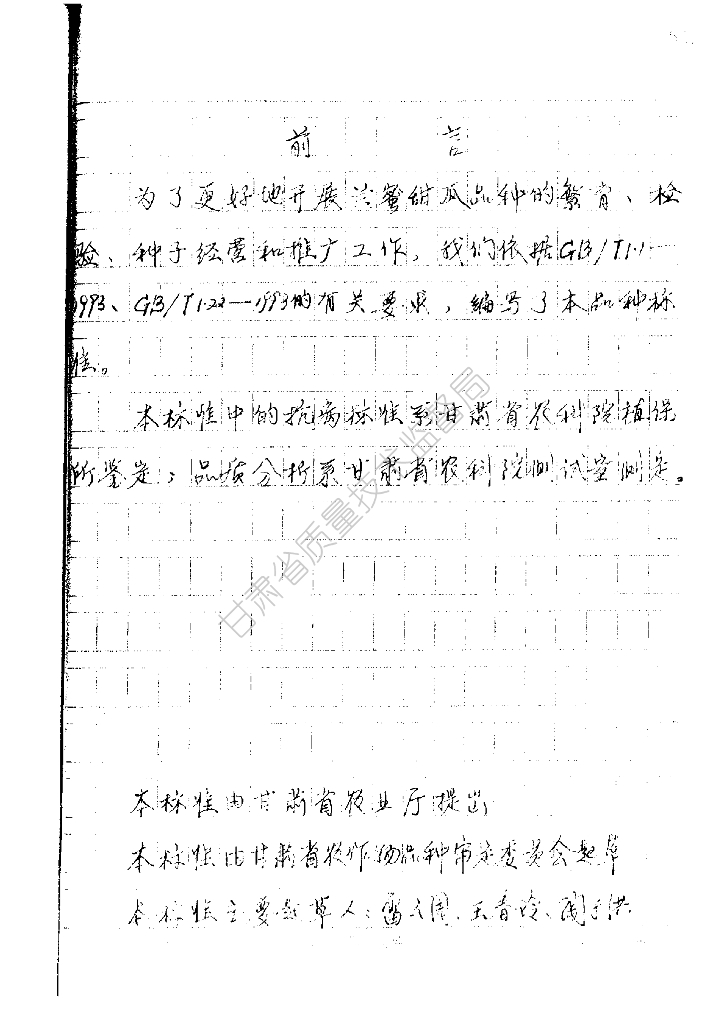 前 言
为了更好地开展兰蜜甜瓜品种的繁育、检
验、种子经营和推广工作，我们依据GB/T1.1—
1993、GB/T1.22—1993的有关要求，编写了本品种标
准。
本标准中的抗病标准系甘肃省农科院植保
所鉴定；品质分析系甘肃省农科院测试室测定。
甘肃省质量技术监督局
本标准由甘肃省农业厅提出
本标准由甘肃省农作物品种审定委员会起草
本标准主要起草人：王香玲、